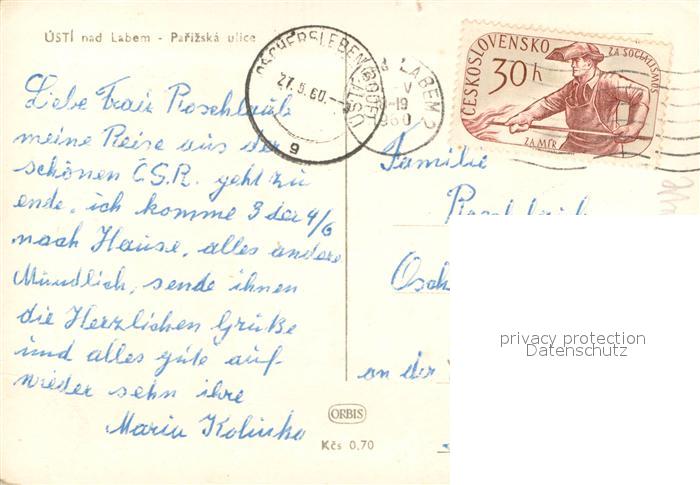 ÚSTÍ nad Labem - Pařížská ulice
Liebe Frau Roschlaub
meine Reise aus der
schönen Č.S.R. geht zu
ende, ich komme 3 der 4/6
nach Hause, alles andere
Mündlich, sende ihnen
die Herzlichen Grüße
und alles gute auf
wieder sehn ihre
Maria Kolinko
ORBIS
Kčs 0,70
OSCHERSLEBEN (BODE)
27.5.60.-
g
LABEM 2
V
-19
960
ČESKOSLOVENSKO
30 h
ZA SOCIALISMUS
ZA MÍR
Familie
Roschlaub
Osch
an der
privacy protection
Datenschutz